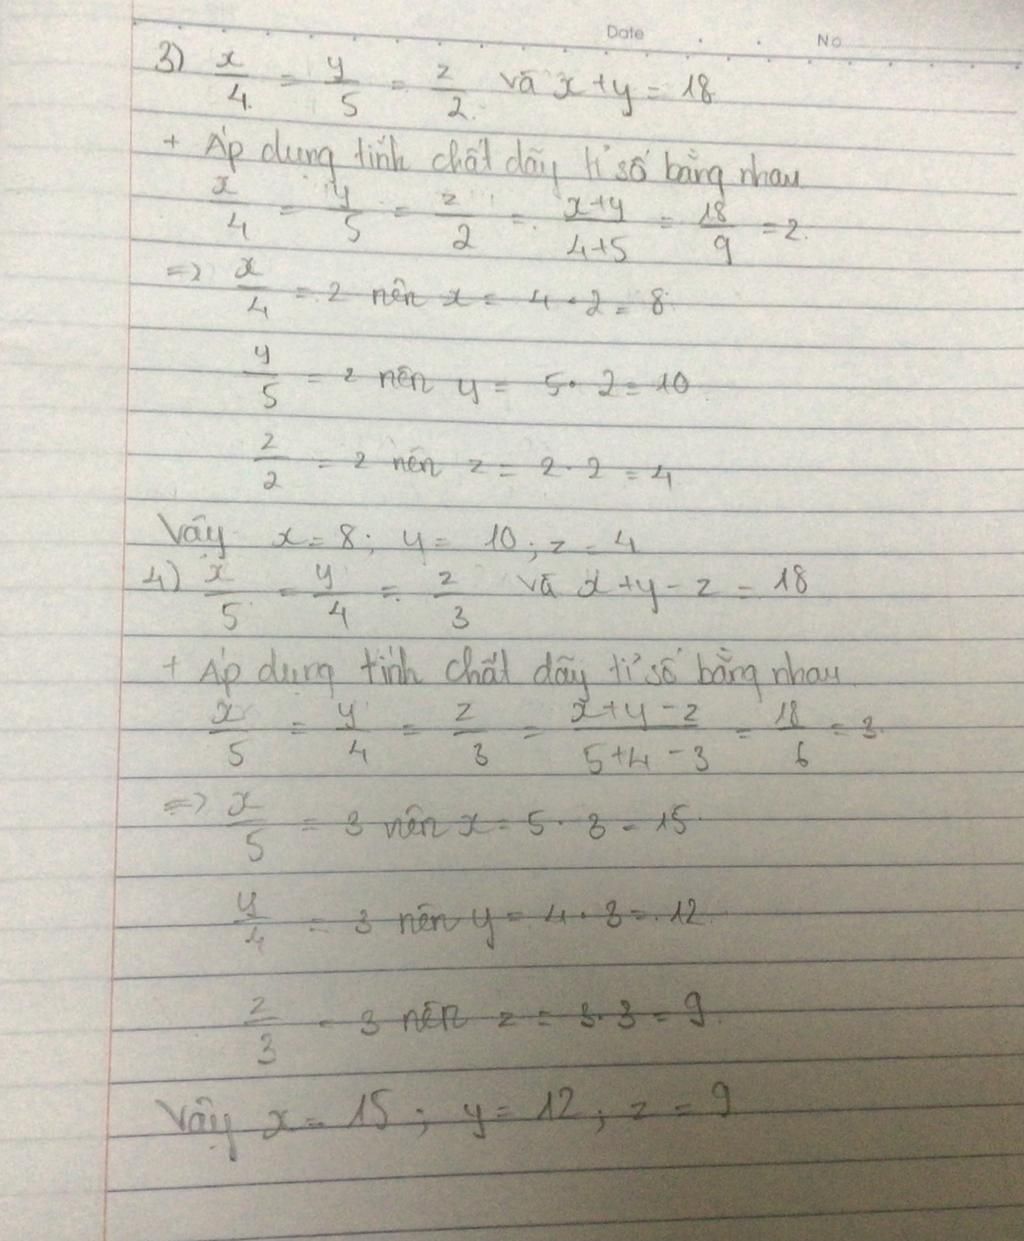 Date No
3) x/4 = y/5 = z/2 và x+y = 18
+ Áp dụng tính chất dãy tỉ số bằng nhau
x/4 = y/5 = z/2 = x+y/4+5 = 18/9 = 2.
=> x/4 = 2 nên x = 4 . 2 = 8
y/5 = 2 nên y = 5 . 2 = 10
z/2 = 2 nên z = 2 . 2 = 4
Vậy x = 8; y = 10; z = 4
4) x/5 = y/4 = z/3 và x+y-z = 18
+ Áp dụng tính chất dãy tỉ số bằng nhau
x/5 = y/4 = z/3 = x+y-z/5+4-3 = 18/6 = 3.
=> x/5 = 3 nên x = 5 . 3 = 15.
y/4 = 3 nên y = 4 . 3 = 12.
z/3 = 3 nên z = 3.3 = 9.
Vậy x = 15; y = 12; z = 9